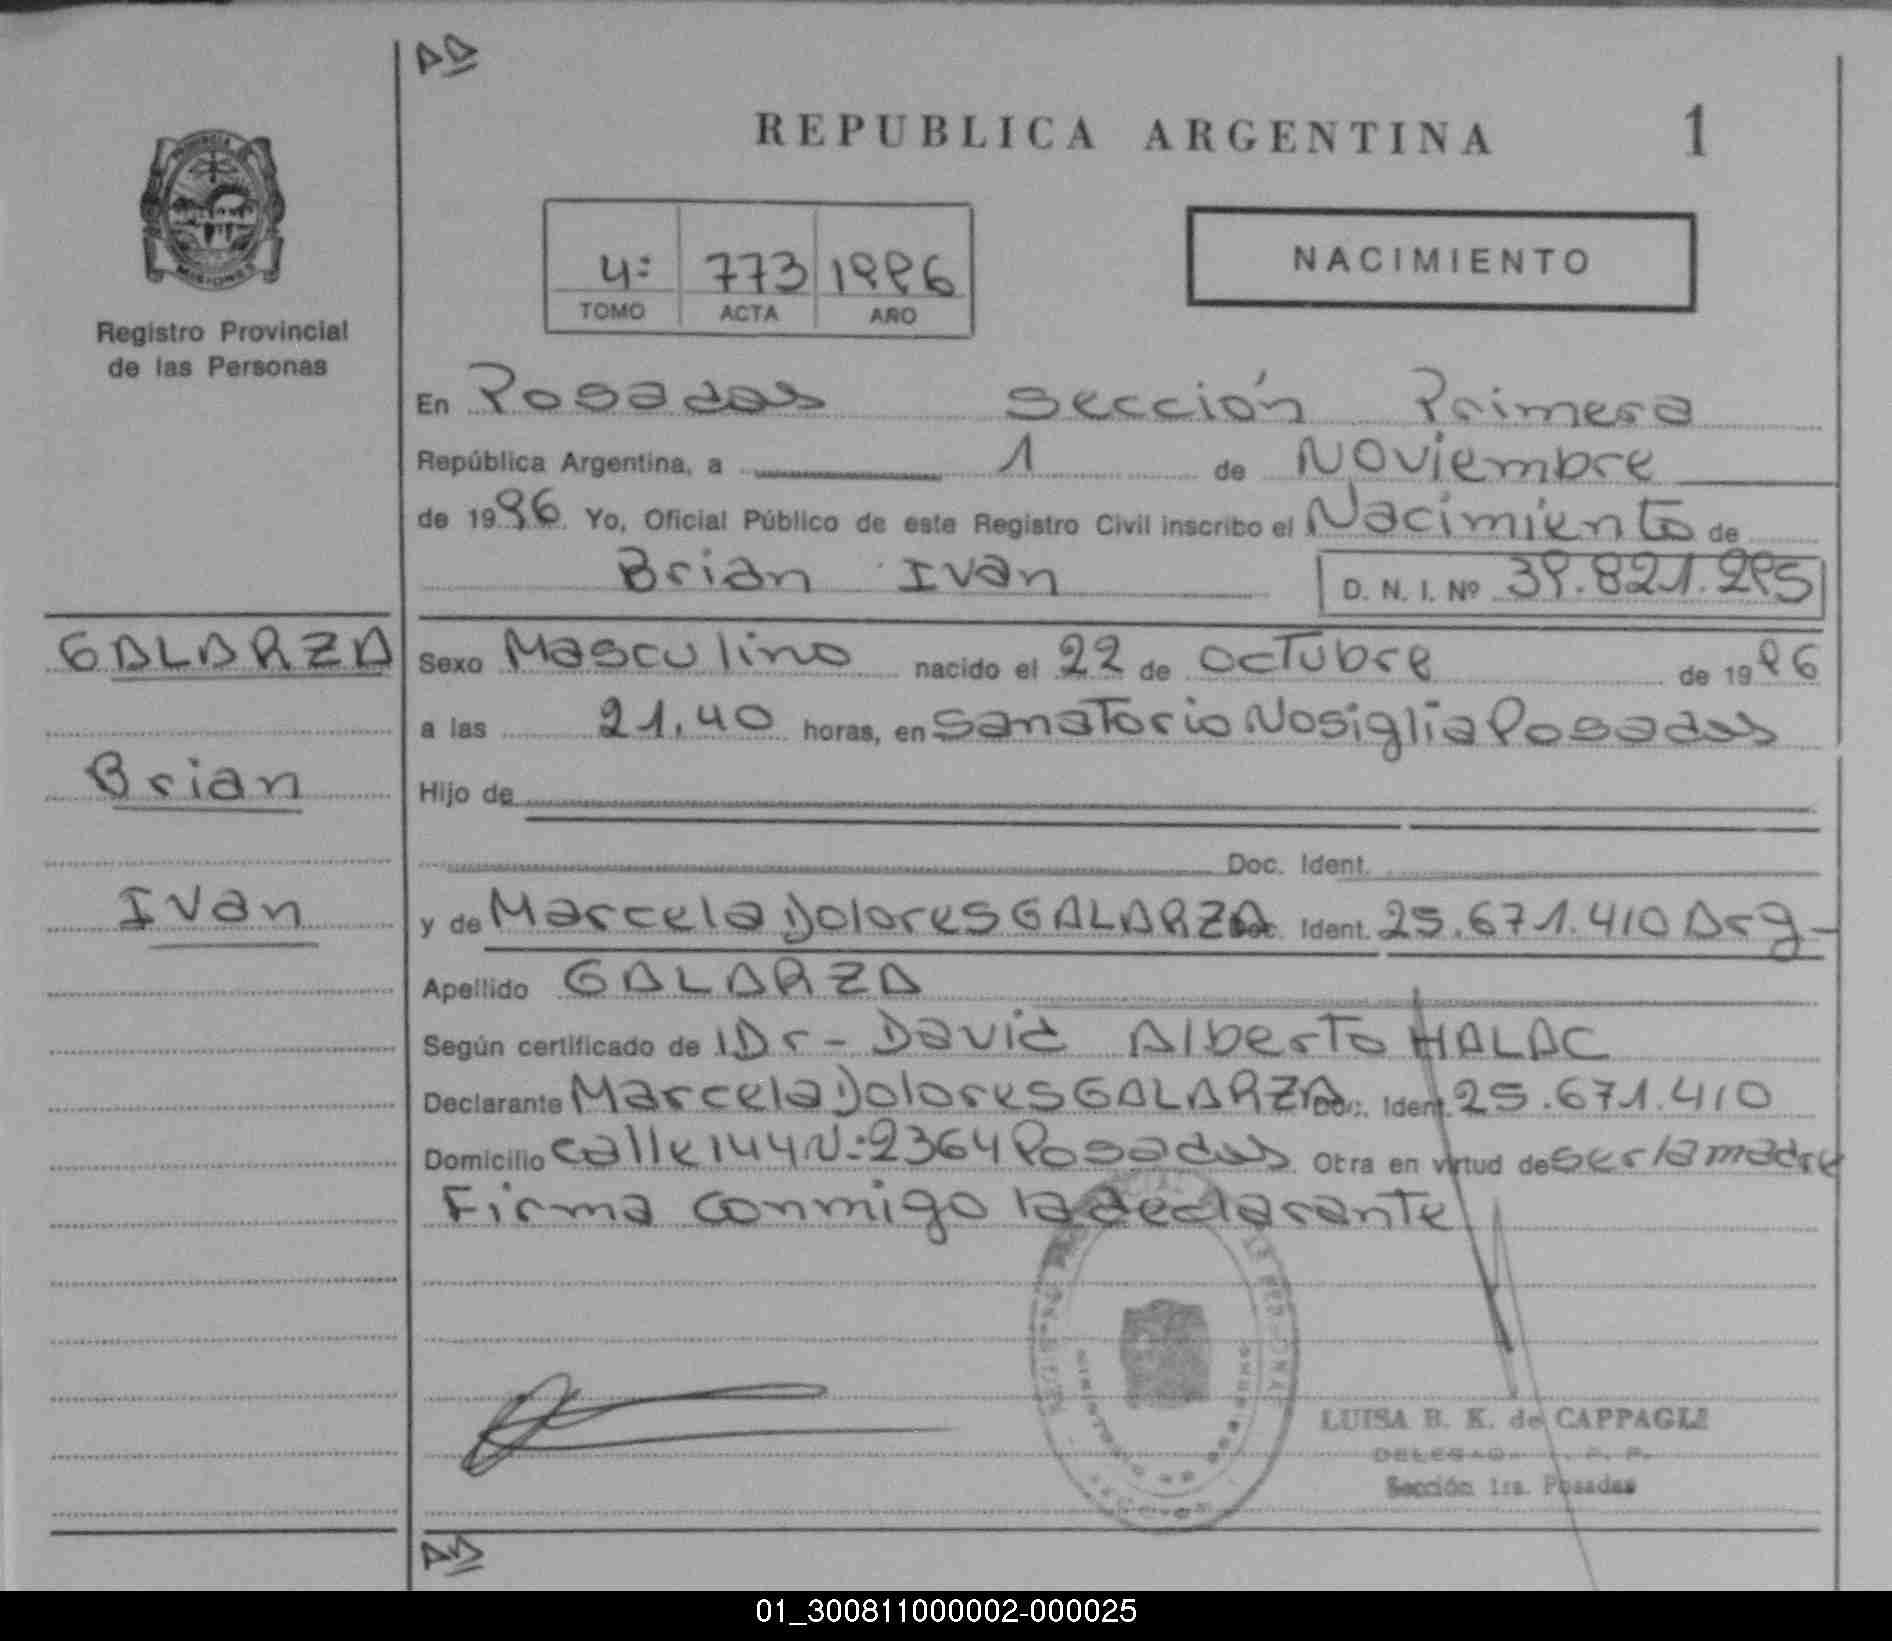 REPUBLICA ARGENTINA 1
PROVINCIA
MISIONES
Registro Provincial
de las Personas
4º 773 1996
TOMO ACTA AÑO
NACIMIENTO
En Posadas Sección Primera
República Argentina, a 1 de Noviembre
de 1996 Yo, Oficial Público de este Registro Civil inscribo el Nacimiento de
Brian Ivan D. N. I. Nº 39.821.295
GALARZA
Brian
Ivan
Sexo Masculino nacido el 22 de octubre de 1996
a las 21,40 horas, en Sanatorio Nosiglia Posadas
Hijo de
Doc. Ident.
y de Marcela Dolores GALARZA Doc. Ident. 25.671.410 Arg-
Apellido GALARZA
Según certificado de Dr- David Alberto HALAC
Declarante Marcela Dolores GALARZA Doc. Ident. 25.671.410
Domicilio calle 144 N:2364 Posadas Otra en virtud de ser la madre
Firma conmigo la declarante
LUISA B. K. de CAPPAGLI
Sección 1ra. Posadas
01_300811000002-000025